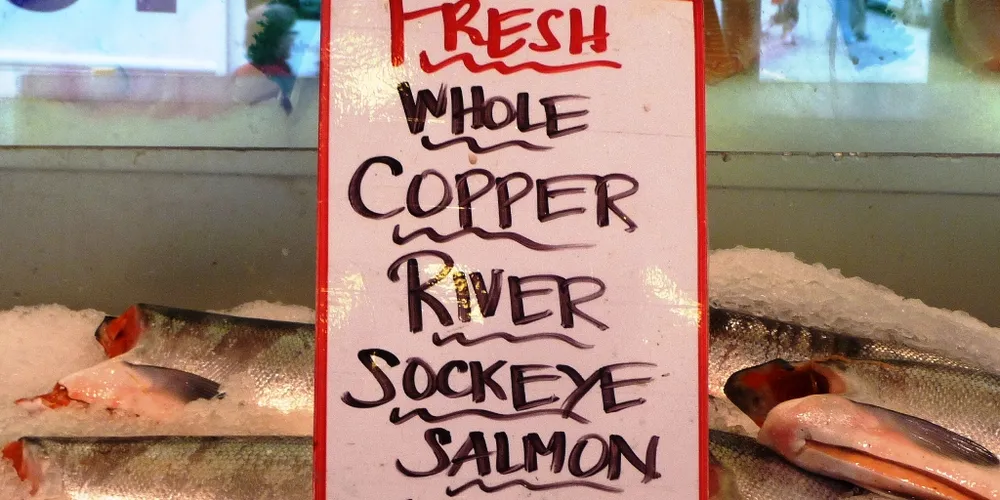 FRESH
WHOLE
COPPER
RIVER
SOCKEYE
SALMON